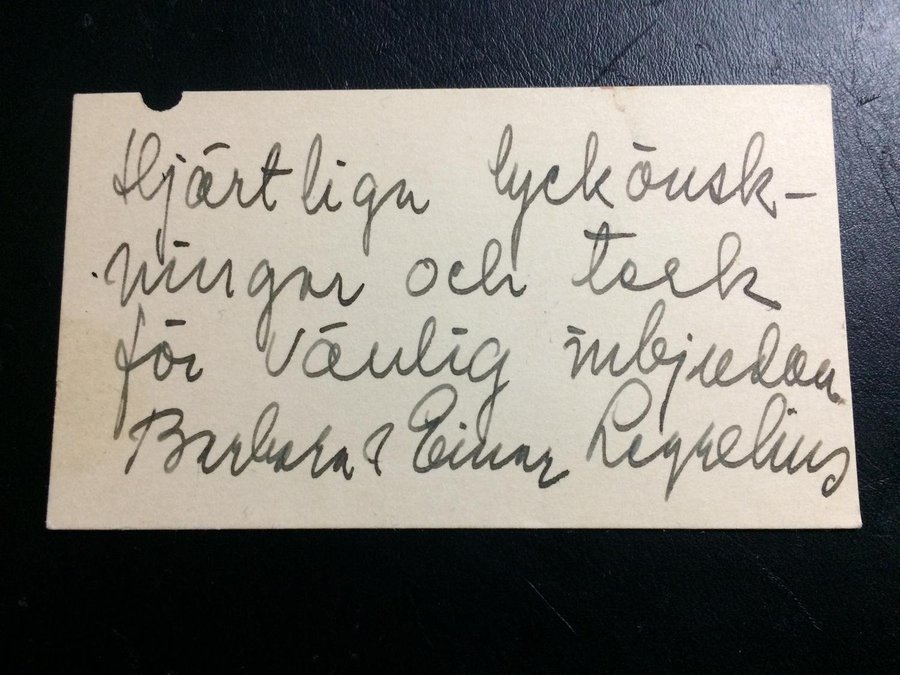 Hjärtliga lyckönsk-
ningar och tack
för vänlig inbjudan
Barbara & Einar